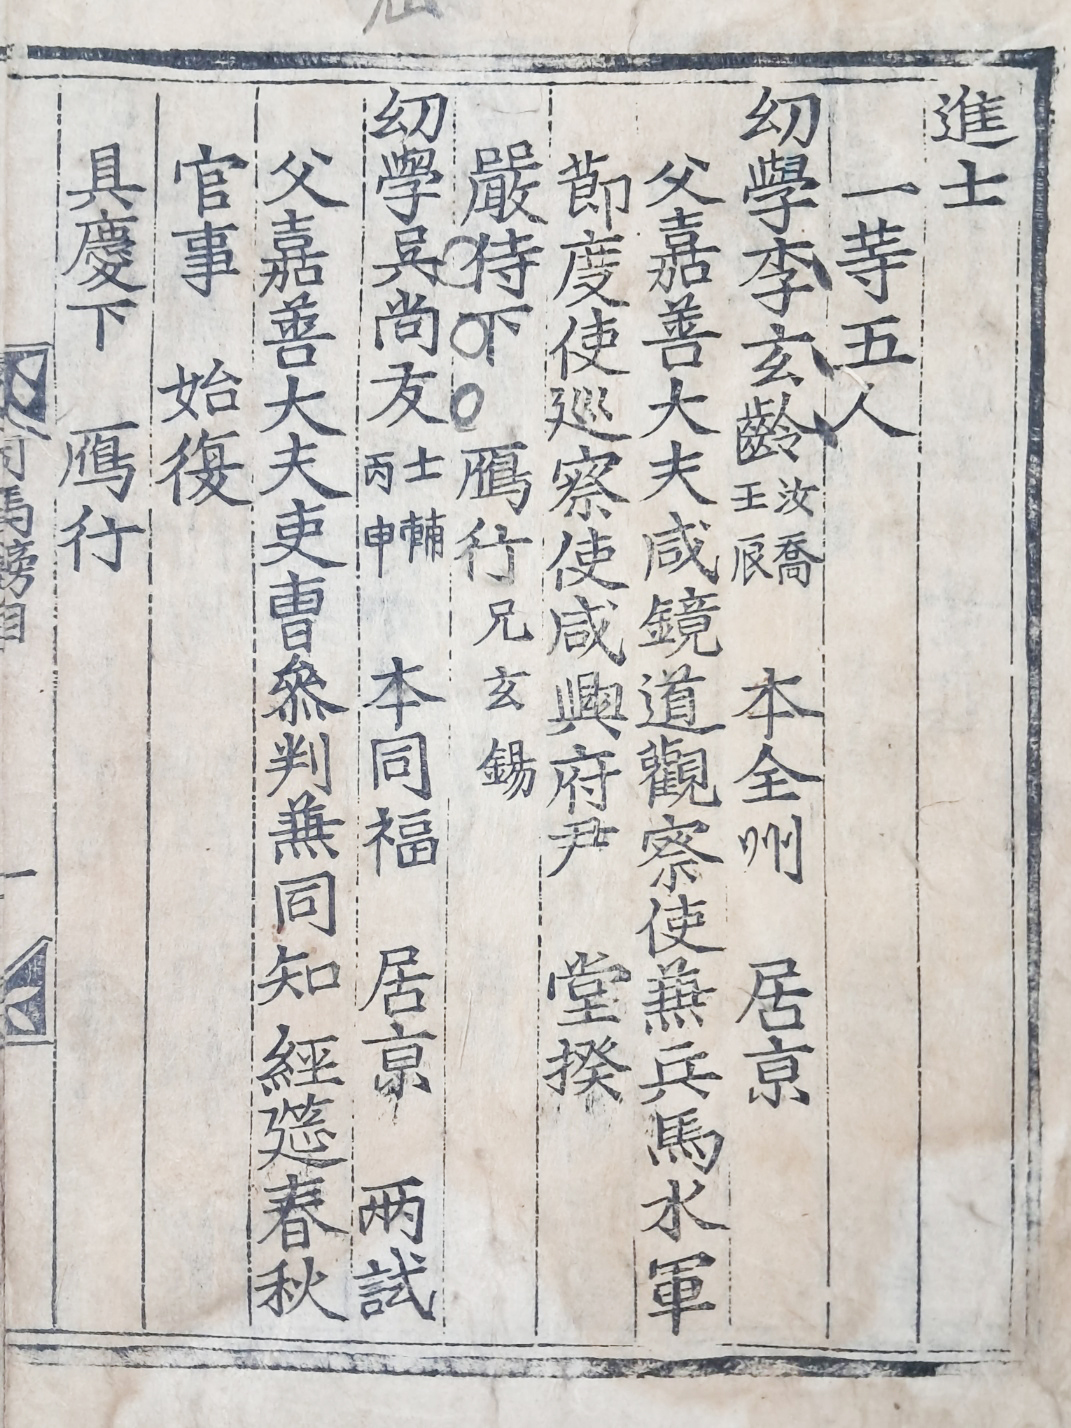 進士
一等五人
幼學李玄齡 汝喬 壬辰 本全州 居京
父嘉善大夫咸鏡道觀察使兼兵馬水軍
節度使巡察使咸興府尹 堂揆
嚴侍下 鴈行 兄玄錫
幼學吳尙友 士輔 丙申 本同福 居京 兩試
父嘉善大夫吏曹參判兼同知 經筵春秋
官事 始復
具慶下 鴈行
司馬榜目
一